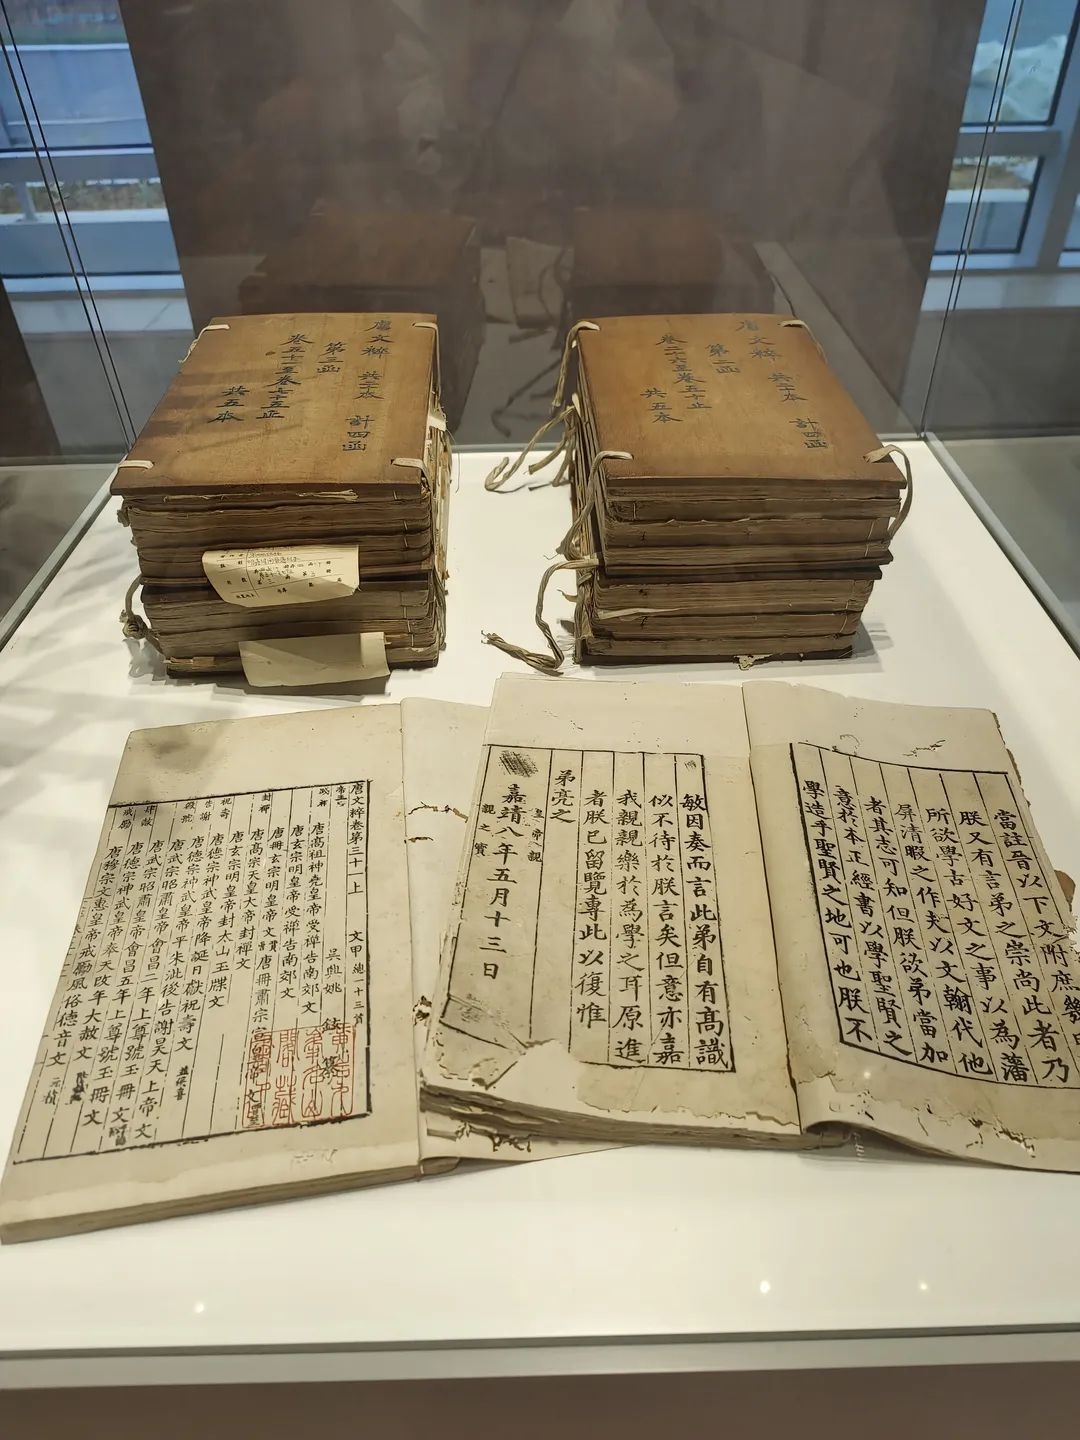 唐文粹 共二十本 計四函
第三函
卷五十一至卷七十五止
共五本
唐文粹 共二十本 計四函
第二函
卷二十六至卷五十止
共五本
當註晉以下文附庶幾
朕又有言弟之崇尚此者乃
所欲學古好文之事以為藩
屏清暇之作夫以文翰代他
者其志可知但朕欲弟當加
意於本正經書以學聖賢之
學造乎聖賢之地可也朕不
敏因奏而言此弟自有高識
似不待於朕言矣但意亦嘉
我親親樂於為學之耳原進
者朕已留覽專此以復惟
弟亮之
皇帝親
嘉靖八年五月十三日
親之寶
唐文粹卷第三十一上 文甲 總一十三首
吳興姚 鉉 纂
唐高祖神堯皇帝受禪告南郊文
唐玄宗明皇帝受禪告南郊文
唐高宗天皇大帝封禪文
唐玄宗明皇帝封太山玉牒文
祝壽
唐德宗神武皇帝降誕日獻祝壽文
告謝
唐德宗神武皇帝平朱泚後告謝昊天上帝文
唐武宗昭肅皇帝會昌二年上尊號玉冊文
唐武宗昭肅皇帝會昌五年上尊號玉冊文
唐德宗神武皇帝奉天改年大赦文
戒勵
唐穆宗文惠皇帝戒勵風俗德音文 元稹